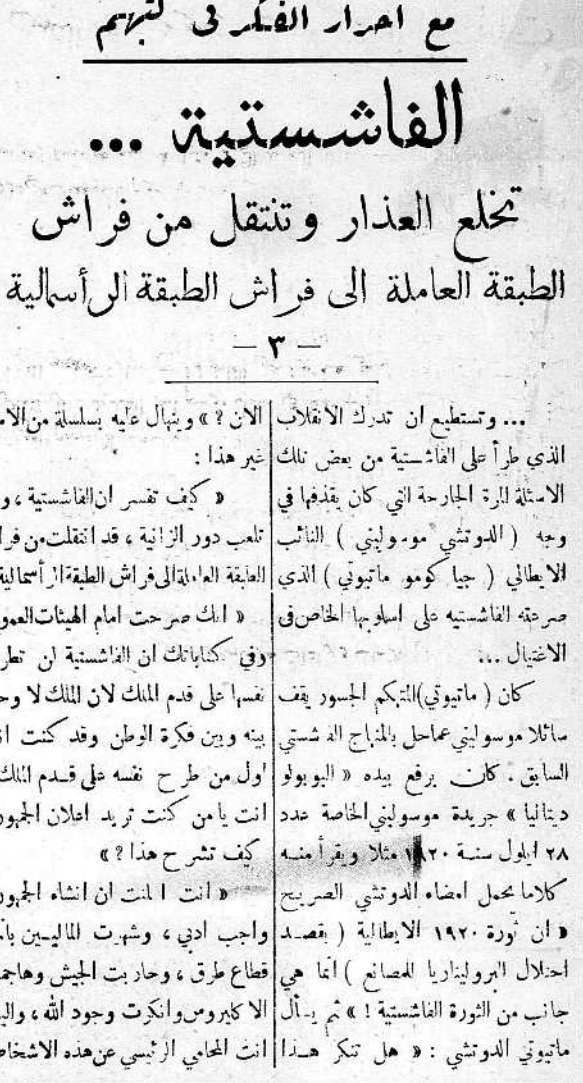 مع احرار الفكر في
الفاشستية ...
تخلع العذار وتنتقل من فراش
الطبقة العاملة الى فراش الطبقة الرأسمالية
— ٣ —
... وتستطيع ان تدرك الانقلاب
الذي طرأ على الفاشستية من بعض تلك
الاسئلة المرة الجارحة التي كان يقذفها في
وجه ( الدوتشي موسوليني ) النائب
الايطالي ( جيا كومو ماتيوتي ) الذي
صرعته الفاشستيه على اسلوبها الخاص في
الاغتيال ...
كان ( ماتيوتي ) المتهكم الجسور يقف
سائلا موسوليني عما حل بالمنهاج الفاشستي
السابق . كان يرفع بيده « البوبولو
ديتاليا » جريدة موسوليني الخاصة عدد
٢٨ ايلول سنة ١٩٢٠ مثلا ويقرأ منه
كلاما يحمل امضاء الدوتشي الصريح
« ان ثورة ١٩٢٠ الايطالية ( يقصد
احتلال البروليتاريا للمصانع ) انما هي
جانب من الثورة الفاشستية ! » ثم يسأل
ماتيوتي الدوتشي : « هل تنكر هذا
الان ? » وينهال عليه بسلسلة من
غير هذا :
« كيف تفسر ان الفاشستية ، و
تلعب دور الزانية ، قد انتقلت من
الطبقة العاملة الى فراش الطبقة الرأسمالية
« انك صرحت امام الهيئات
وفي كتاباتك ان الفاشستية لن
نفسها على قدم الملك لان الملك لا
بينه وبين فكرة الوطن وقد كنت
اول من طرح نفسه على قدم الملك
انت يا من كنت تريد اعلان
كيف تشرح هذا ? »
« انت اعلنت ان انشاء
واجب ادبي ، وشهرت الماليين
قطاع طرق ، وحاربت الجيش
الاكليروس وانكرت وجود الله ،
انت المحامي الرئيسي عن هذه